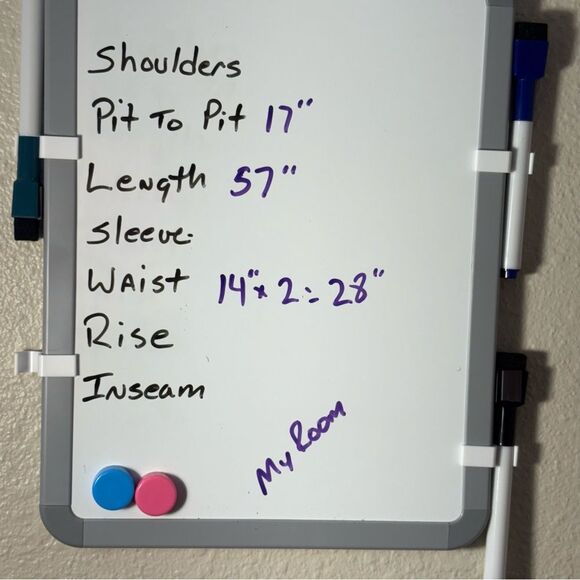 Shoulders
Pit To Pit 17"
Length 57"
Sleeve
Waist 14" x 2 = 28"
Rise
Inseam
My Room